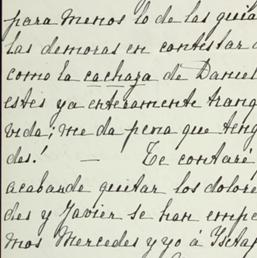 para menos lo de las quia
las demoras en contestar a
como la cachaza de Daniel
estés ya enteramente tranq
vida; me da pena que teng
des! — Te contaré
acabando quitar los dolore
des y Javier se han empe
mos Mercedes y yo á Ixtap